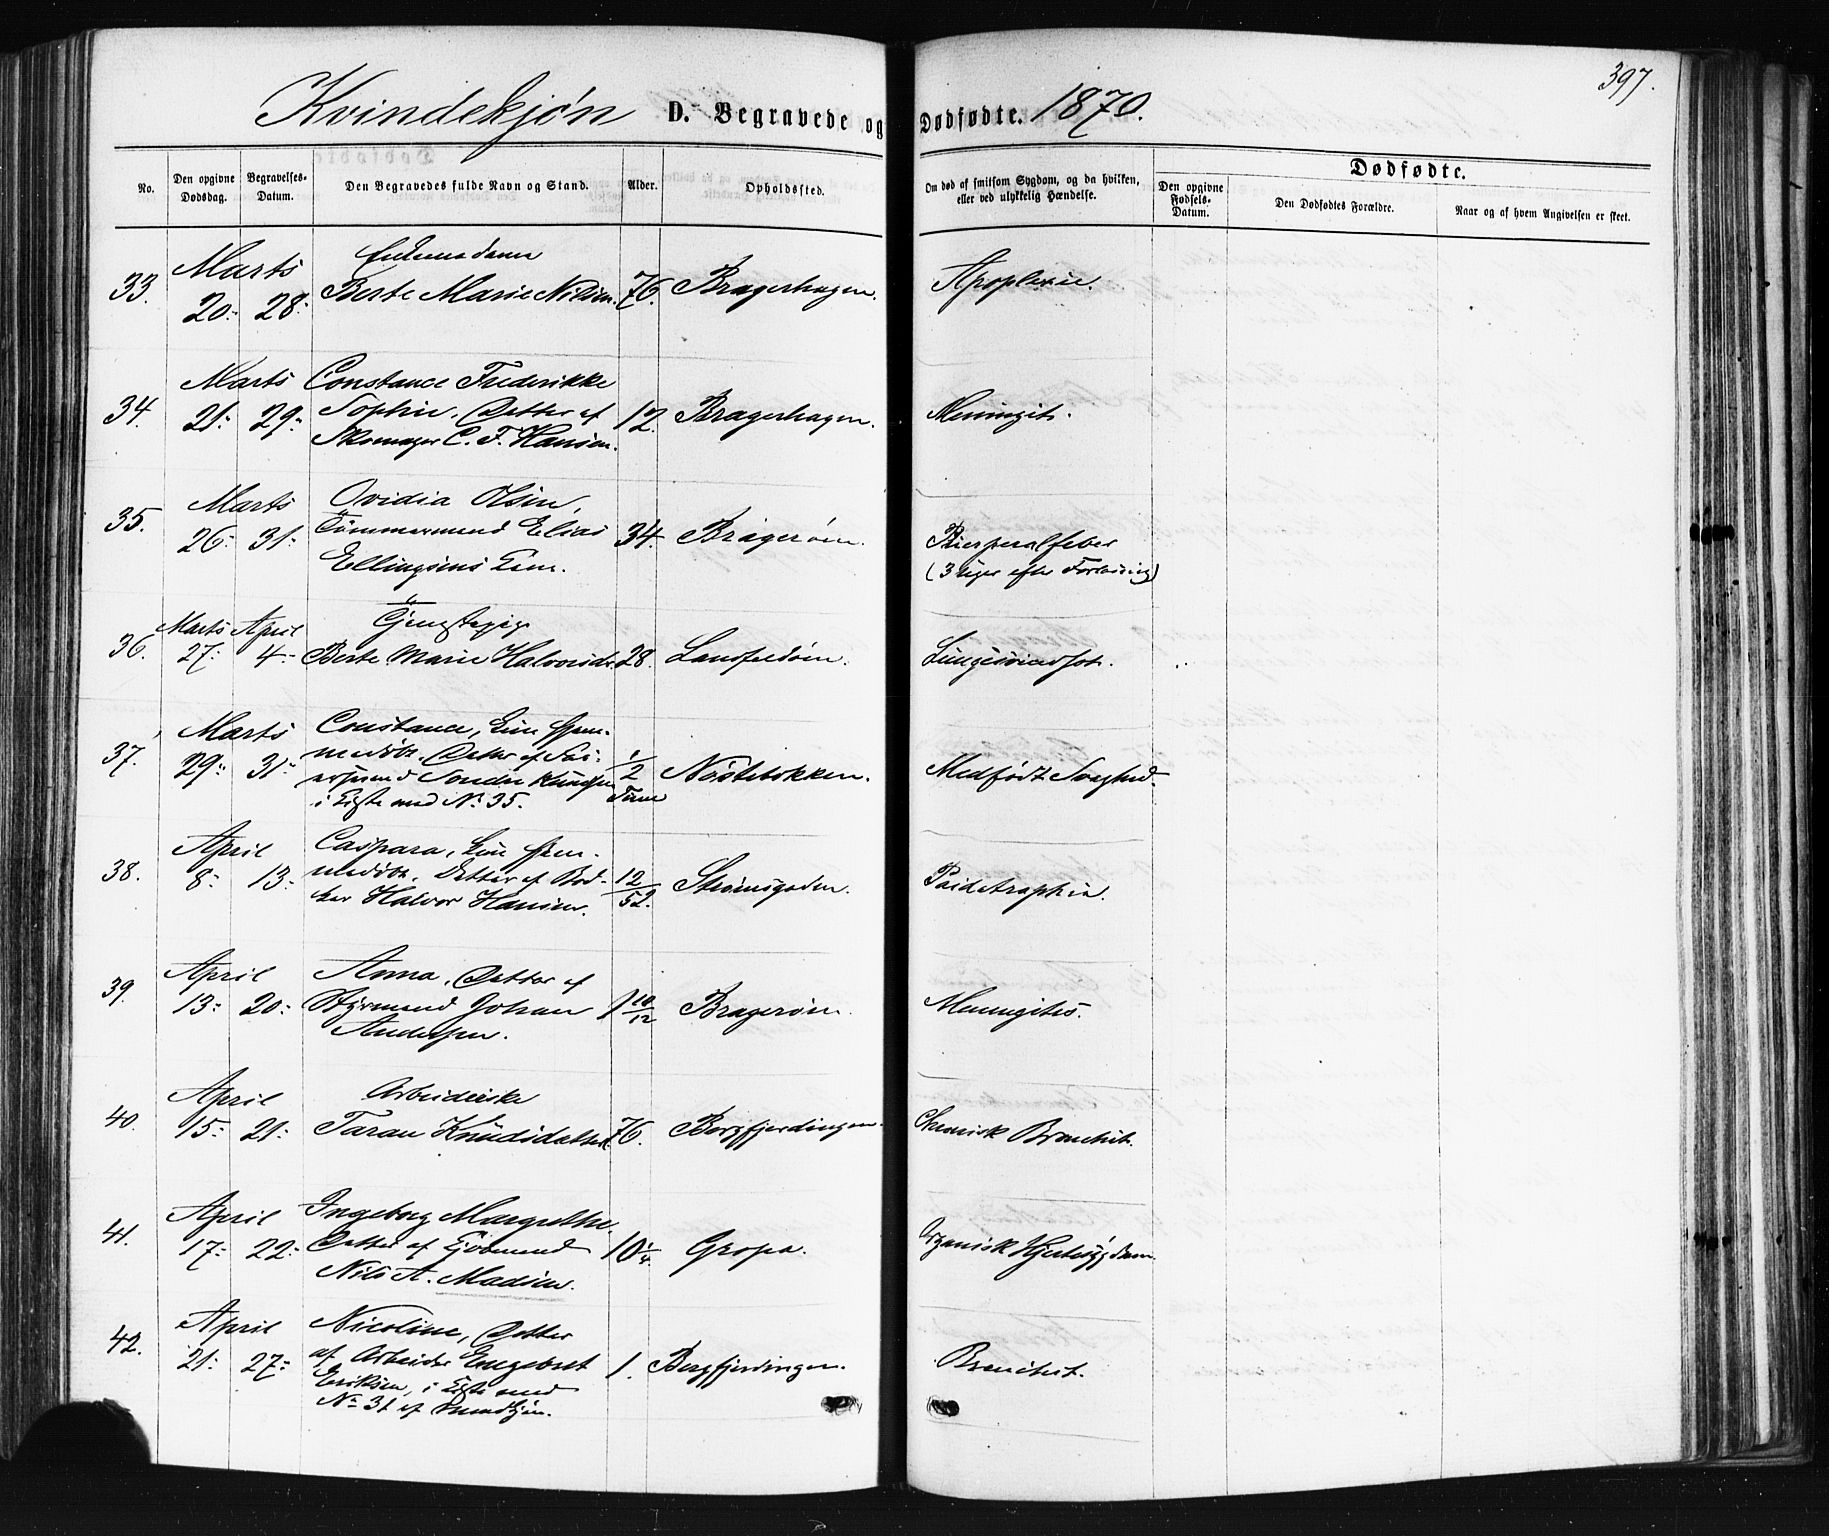 397.
Kvindekjøn D. Begravede og Dødfødte. 1870.
No.
Den opgivne Dødsdag.
Begravelses-Datum.
Den Begravedes fulde Navn og Stand.
Alder.
Opholdssted.
Om død af smitsom Sygdom, og da hvilken, eller ved ulykkelig Hændelse.
Dødfødte.
Den opgivne Fødsels-Datum.
Den Dødfødtes Forældre.
Naar og af hvem Angivelsen er skeet.
Marts
33. 20. 28. Berte Marie Nilsen. 76. Bragerhagen. Apoplexie.
Marts Constance Frederikke
34. 21. 29. Sophie, Datter af 12. Bragerhagen. Meningit.
Skomager C. F. Hansen.
Marts Ovidia Olsen,
35. 26. 31. Tømmermand Elias 34. Bragerøen. Puerperalfeber
Ellingsens (3 Uger efter Forløsning)
Marts April
36. 27. 4. Berte Marie Halvorsd. 28. Landfaldøen. Lungesvindsot.
Marts Constance, hjem-
37. 29. 31. medøbt, Datter af 1/2 Time Nøstebakken. Medfødt Svaghed.
Sondre Knudsen
i Kiste med No 35.
April Caspara, hjem-
38. 8. 13. medøbt, Datter af Bød- 12/52. Strømsgaden. Paidatrophia.
ker Halvor Hansen.
April Anna, Datter af
39. 13. 20. Styrmand Johan 1 10/12 Bragerøen. Meningites.
Andersen.
April Arbeiderske
40. 15. 21. Taran Knudsdatter 76. Bergfjerdingen. Chronisk Bronchit.
April Ingeborg Margrethe,
41. 17. 22. Datter af Sjømand 10 1/4. Gropa. Organisk Hjertesygdom.
Nils A. Madsen.
April Nicoline, Datter
42. 21. 27. af Arbeider Engebret 1. Bergfjerdingen. Bronchit.
Eriksen, i Kiste med
No 31 af Mandkjøn.